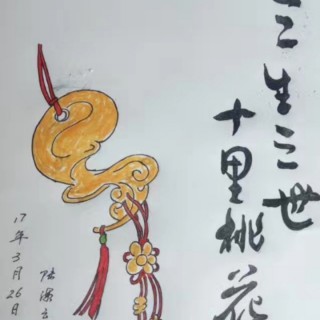 三生三世
十里桃花
17年3月26日